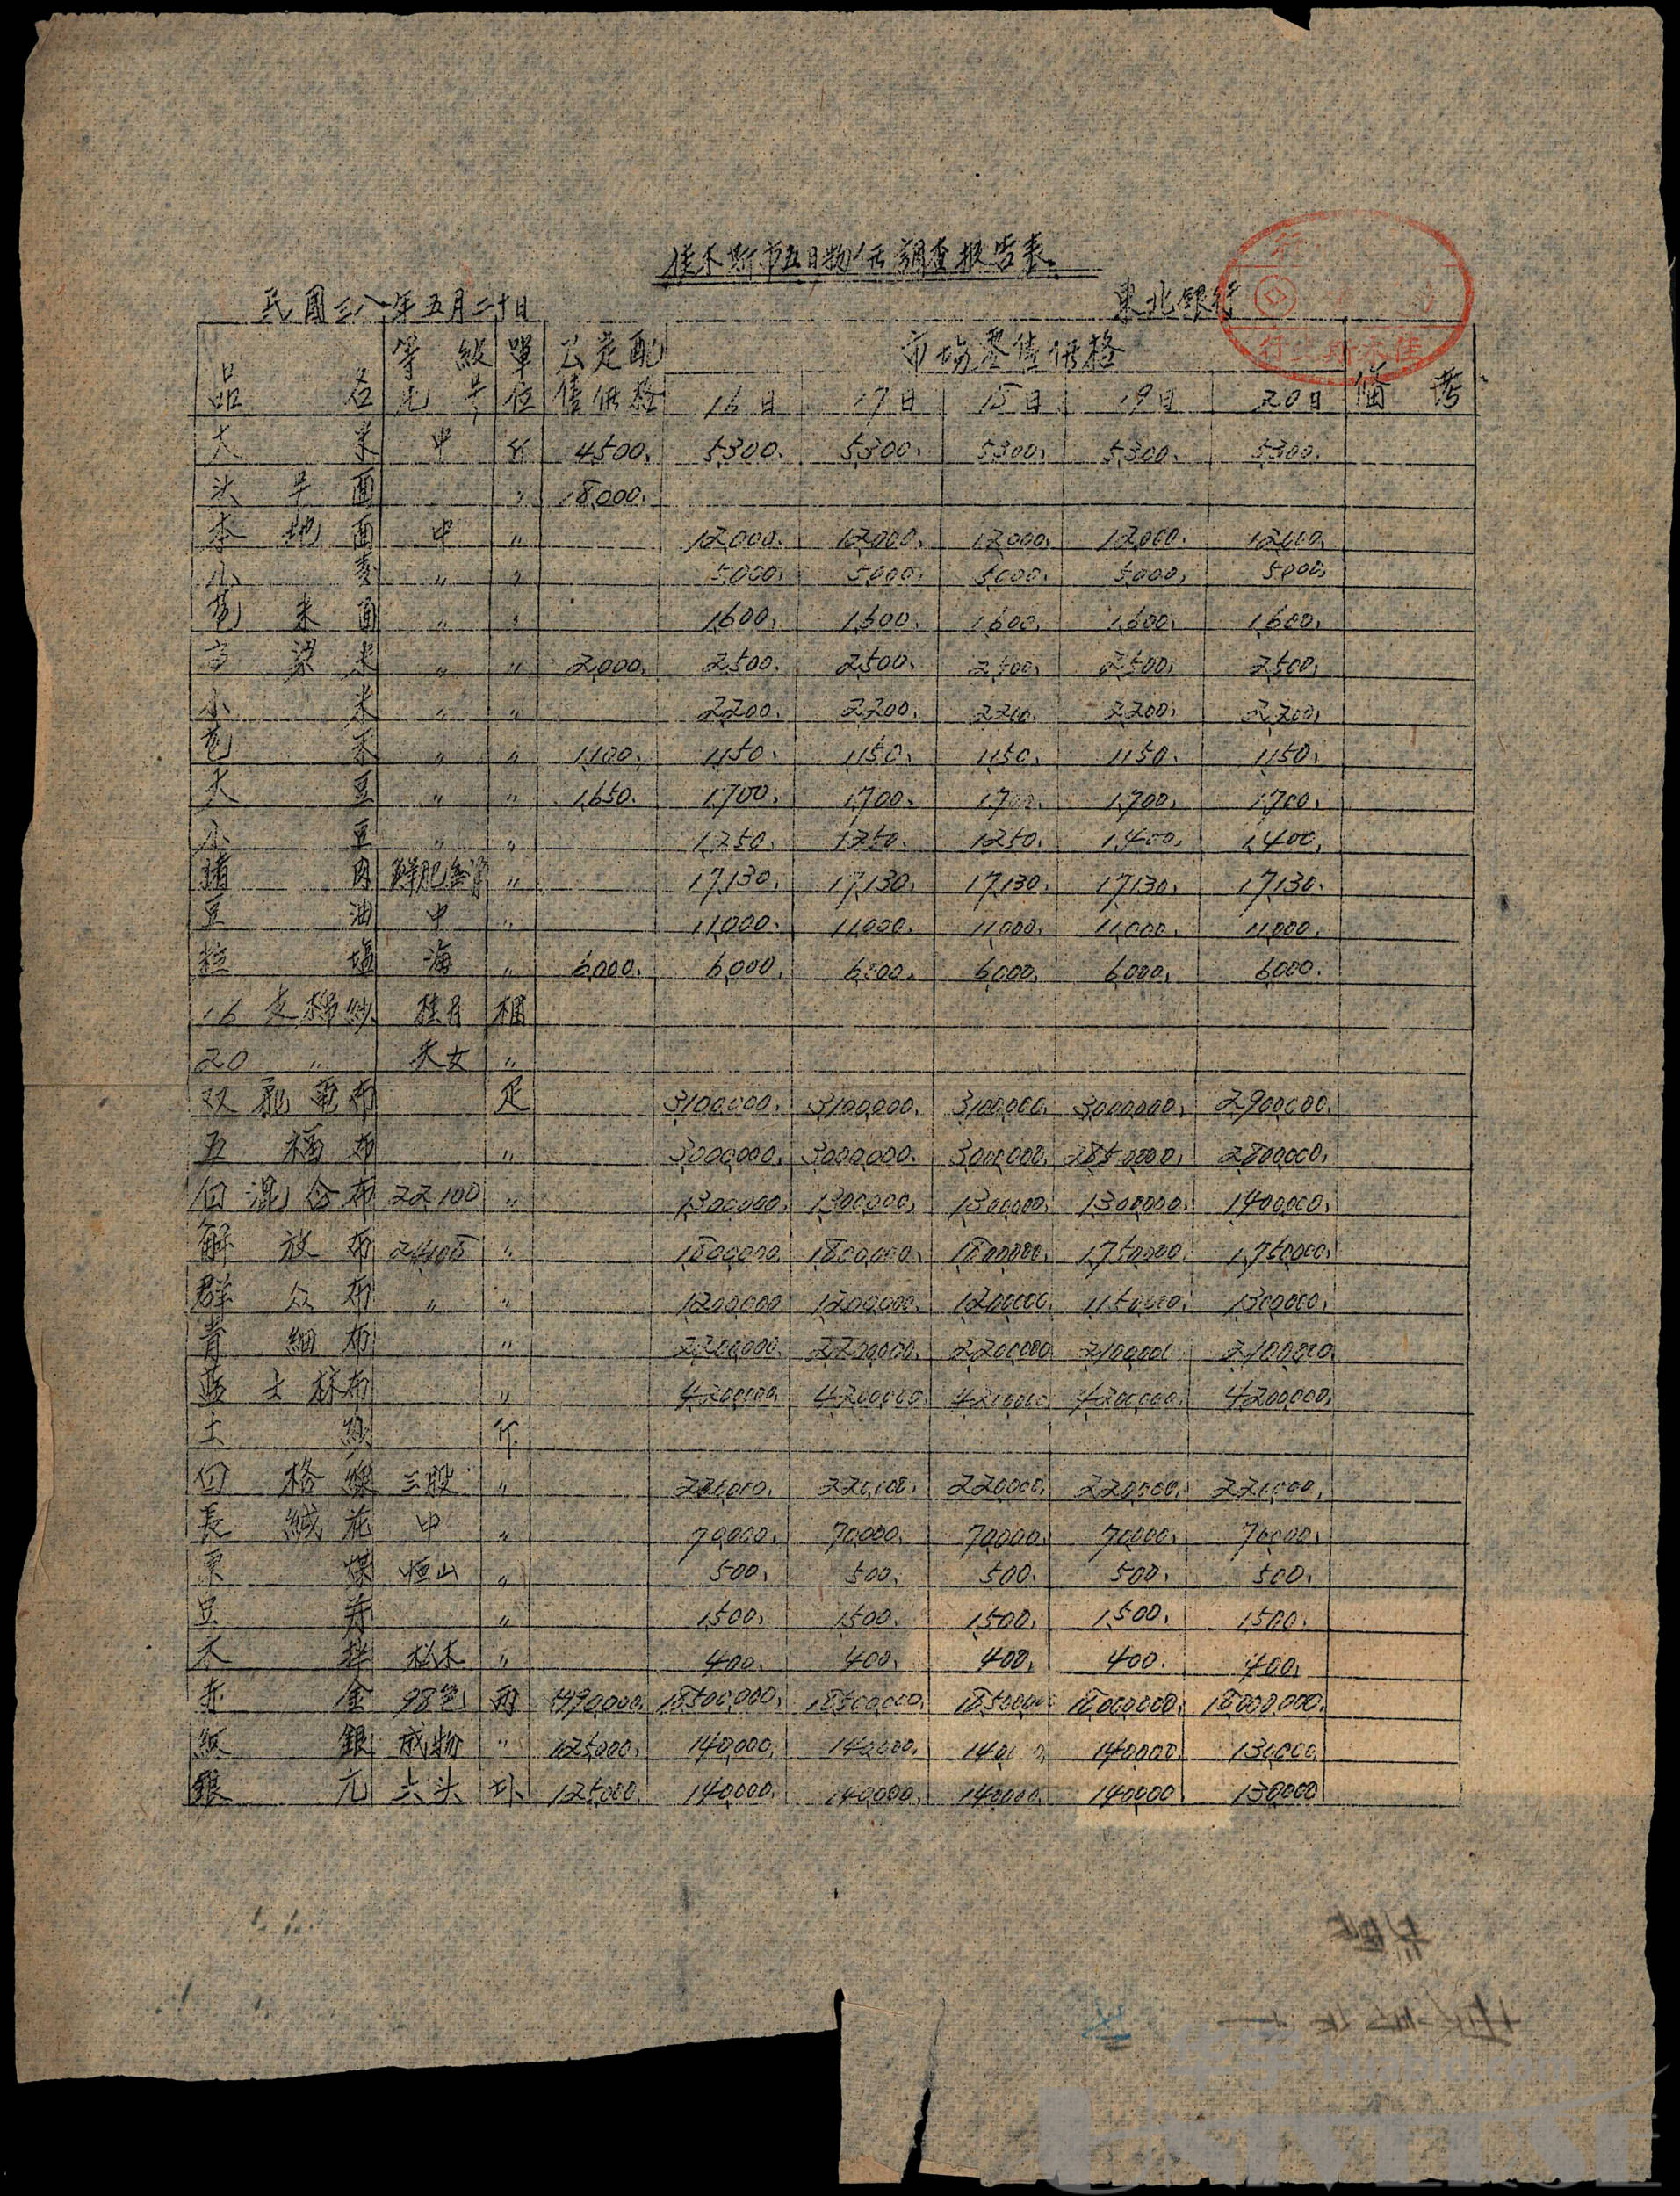 佳木斯市五日物价調查报告表
民國三八年五月二十日 東北銀行
品名 等級牌号 單位 公定配售価格 市場零售価格 備考
16日 17日 18日 19日 20日
大米 中 斤 4,500. 5,300. 5,300. 5,300. 5,300. 5,300.
头号面 〃 18,000.
本地面 中 〃 12,000. 12,000. 12,000. 12,000. 12,000.
小麦 〃 〃 5,000. 5,000. 5,000. 5,000. 5,000.
苞米面 〃 〃 1,600. 1,600. 1,600. 1,600. 1,600.
高粱米 〃 〃 2,000. 2,500. 2,500. 2,500. 2,500. 2,500.
小米 〃 〃 2,200. 2,200. 2,200. 2,200. 2,200.
苞米 〃 〃 1,100. 1,150. 1,150. 1,150. 1,150. 1,150.
大豆 〃 〃 1,650. 1,700. 1,700. 1,700. 1,700. 1,700.
小豆 〃 〃 1,250. 1,250. 1,250. 1,400. 1,400.
猪肉 鮮肥 〃 17,130. 17,130. 17,130. 17,130. 17,130.
豆油 中 〃 11,000. 11,000. 11,000. 11,000. 11,000.
粒塩 海 〃 6,000. 6,000. 6,000. 6,000. 6,000. 6,000.
16支棉紗 桂月 捆
20〃 天女 〃
双龍電布 疋 3,100,000. 3,100,000. 3,100,000. 3,000,000. 2,900,000.
五福布 〃 3,000,000. 3,000,000. 3,000,000. 2,850,000. 2,800,000.
白混合布 22100 〃 1,300,000. 1,300,000. 1,300,000. 1,300,000. 1,400,000.
解放布 24108 〃 1,800,000. 1,800,000. 1,800,000. 1,750,000. 1,750,000.
群众布 〃 〃 1,200,000. 1,200,000. 1,200,000. 1,150,000. 1,300,000.
青細布 〃 2,200,000. 2,200,000. 2,200,000. 2,100,000. 2,100,000.
藍士林布 〃 4,200,000. 4,200,000. 4,200,000. 4,200,000. 4,200,000.
土紗 斤
白格線 三股 〃 220,000. 220,000. 220,000. 220,000. 220,000.
長絨花 中 〃 70,000. 70,000. 70,000. 70,000. 70,000.
煤 恒山 〃 500. 500. 500. 500. 500.
豆 〃 1,500. 1,500. 1,500. 1,500. 1,500.
木柈 松木 〃 400. 400. 400. 400. 400.
赤金 98色 两 18,500,000. 18,500,000. 18,500,000. 18,000,000. 18,000,000.
紋銀 成物 〃 125,000. 140,000. 140,000. 140,000. 140,000. 130,000.
銀元 大头 125,000. 140,000. 140,000. 140,000. 140,000 130,000
华宇 huabid.com
UNIVERSE